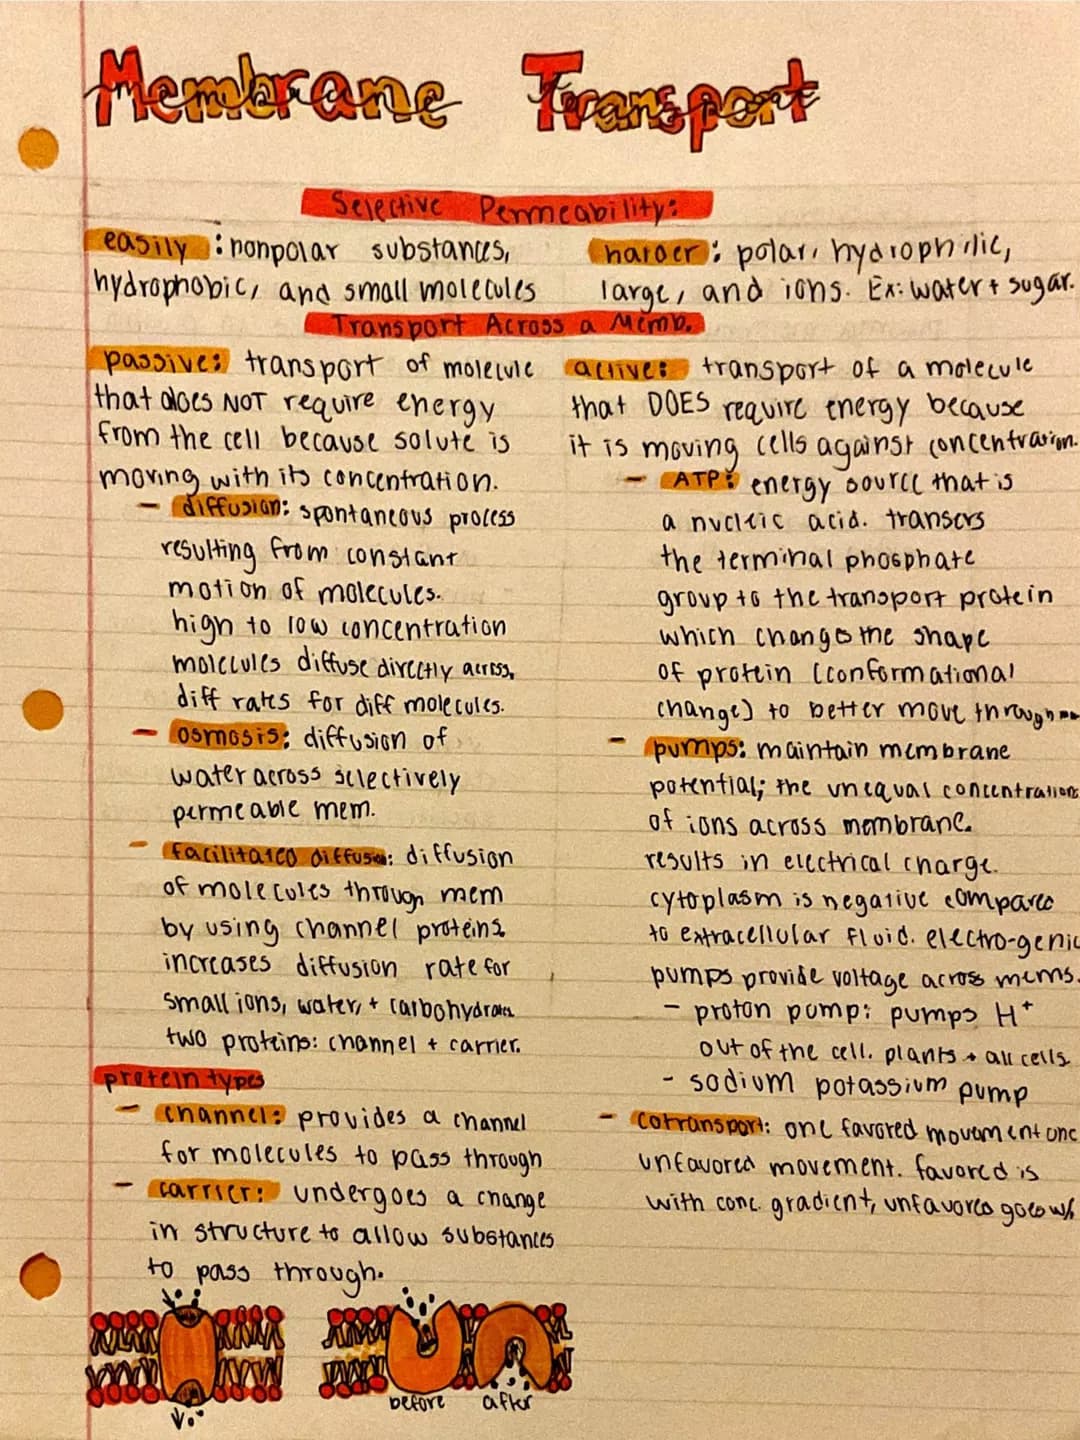 Membrane Transport
Selective Permeability:
easily : nonpolar substances,
hydrophobic, and small molecules
harder: polar, hydrophilic,
large, and ions. Ex: water + sugar.
Transport Across a Memb.
passive: transport of molecule
that does NOT require energy
from the cell because solute is
moving with its concentration.
- diffusion: spontaneous process
resulting from constant
motion of molecules.
high to low concentration
molecules diffuse directly across,
diff rates for diff molecules.
- osmosis: diffusion of
water across selectively
permeable mem.
- facilitated diffusion: diffusion
of molecules through mem
by using channel proteins
increases diffusion rate for
small ions, water, + carbohydrates
two proteins: channel + carrier.
protein types
- channel: provides a channel
for molecules to pass through
- carrier: undergoes a change
in structure to allow substances
to pass through.
before after
active: transport of a molecule
that DOES require energy because
it is moving cells against concentration.
- ATP: energy source that is
a nucleic acid. transers
the terminal phosphate
group to the transport protein
which changes the shape
of protein (conformational
change) to better move through
- pumps: maintain membrane
potential; the unequal concentrations
of ions across membrane.
results in electrical charge.
cytoplasm is negative compared
to extracellular fluid. electro-genic
pumps provide voltage across mems.
- proton pump: pumps H+
out of the cell. plants + all cells
- sodium potassium pump
- cotransport: one favored movement one
unfavored movement. favored is
with conc. gradient, unfavored goes w/